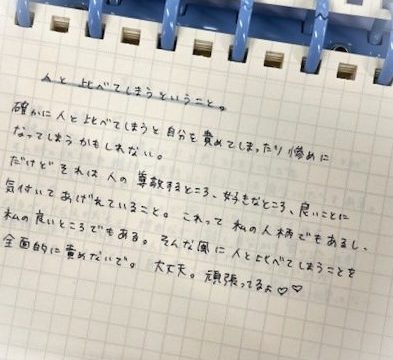 人と比べてしまうということ。
確かに人と比べてしまうと自分を責めてしまったり惨めに
なってしまうかもしれない。
だけどそれは人の尊敬するところ、好きなところ、良いことに
気付いてあげれていること。これって私の人柄でもあるし、
私の良いところでもある。そんな風に人と比べてしまうことを
全面的に責めないで。大丈夫。頑張ってるよ♡♡